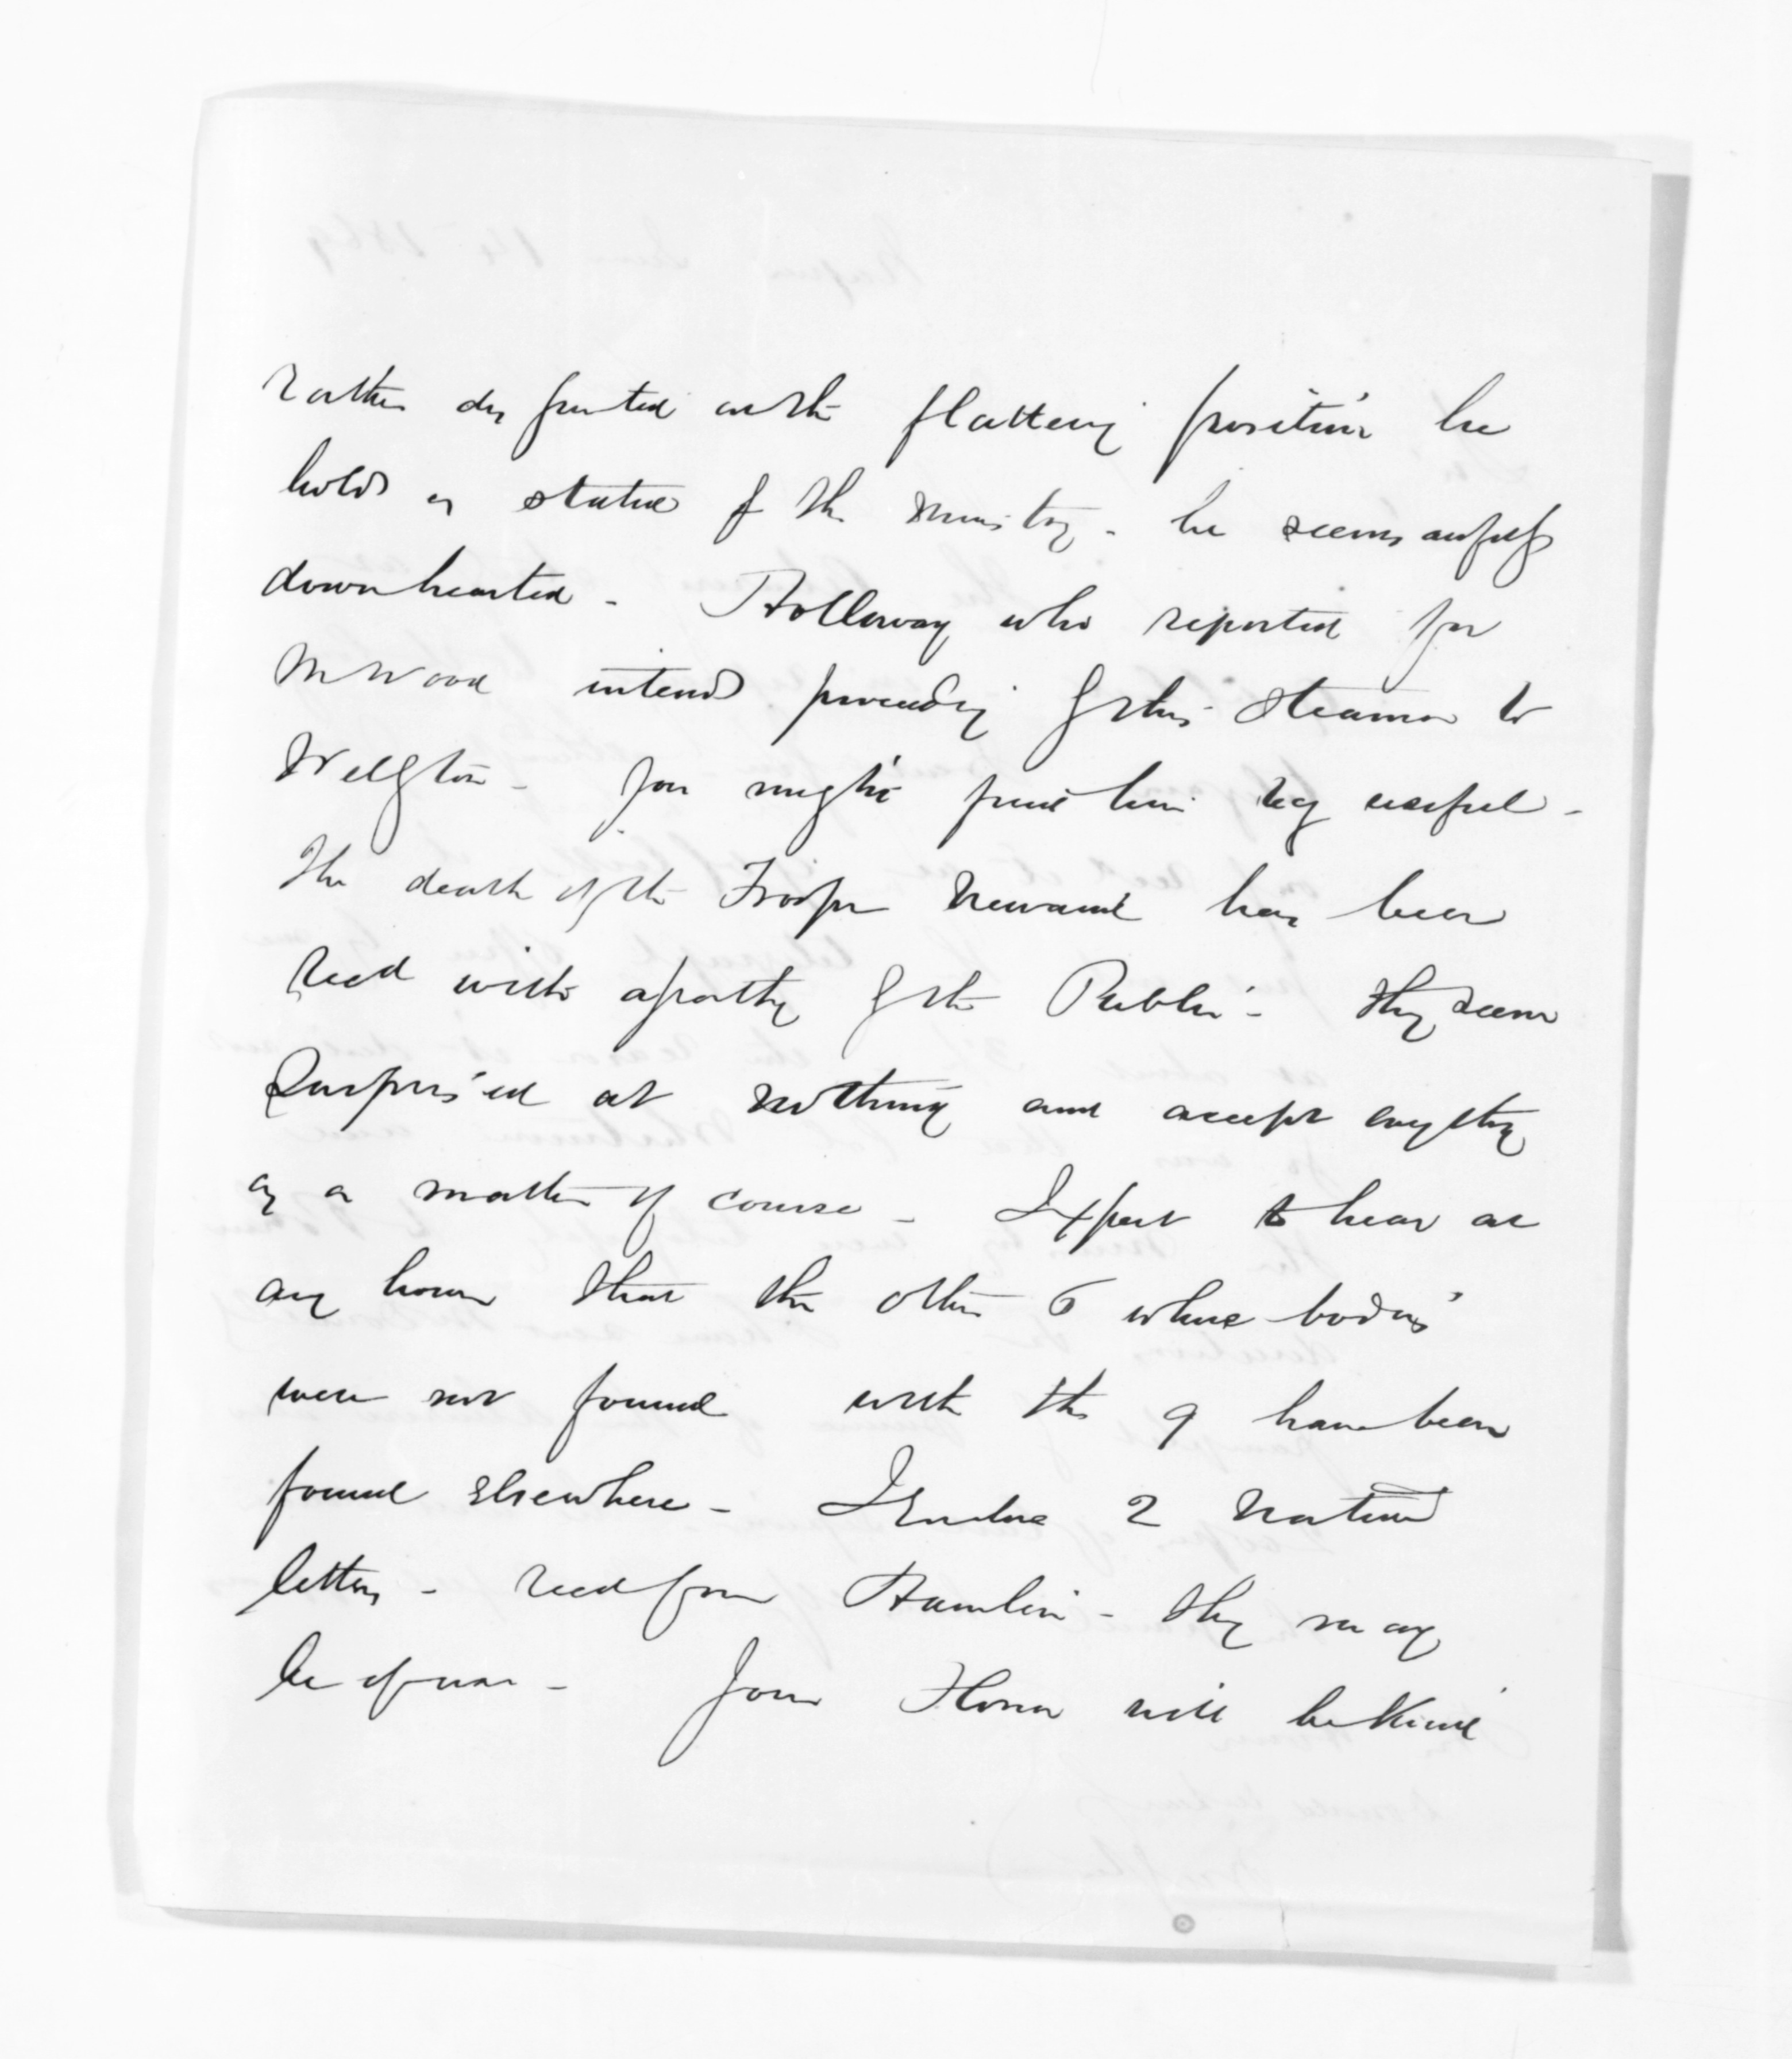 rather disgusted with flattering position he
holds as statue of the ministry - he seems awfully
downhearted - Holloway who reported for
Mr Wood intends proceeding by this Steamer to
Wellgton - you might find him very useful -
The death of the Trooper has been
recd with apathy by the Public - they seem
Surprised at nothing and accept everything
as a matter of course - I expect to hear at
any hour that the other 6 whose bodies
were not found with the 9 have been
found elsewhere - I Enclose 2 Native
letters - recd from Hamlin - they may
be of use - Your Honor will be kind